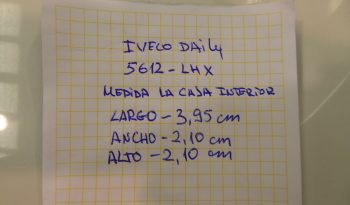 IVECO DAily
5612-LHX
MEDIDA LA CAJA INTERIOR
LARGO - 3,95 cm
ANCHO - 2,10 cm
ALTO - 2,10 cm